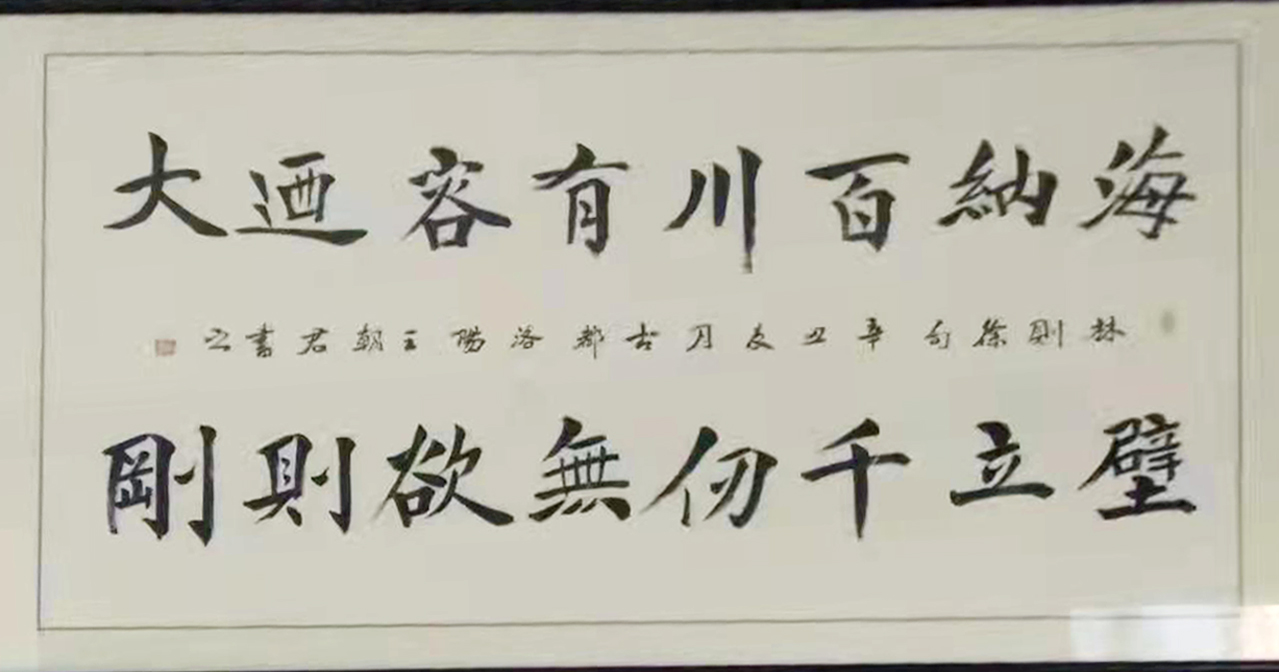 海納百川有容迺大
林則徐句辛丑月古都洛陽王朝君書之
壁立千仞無欲則剛